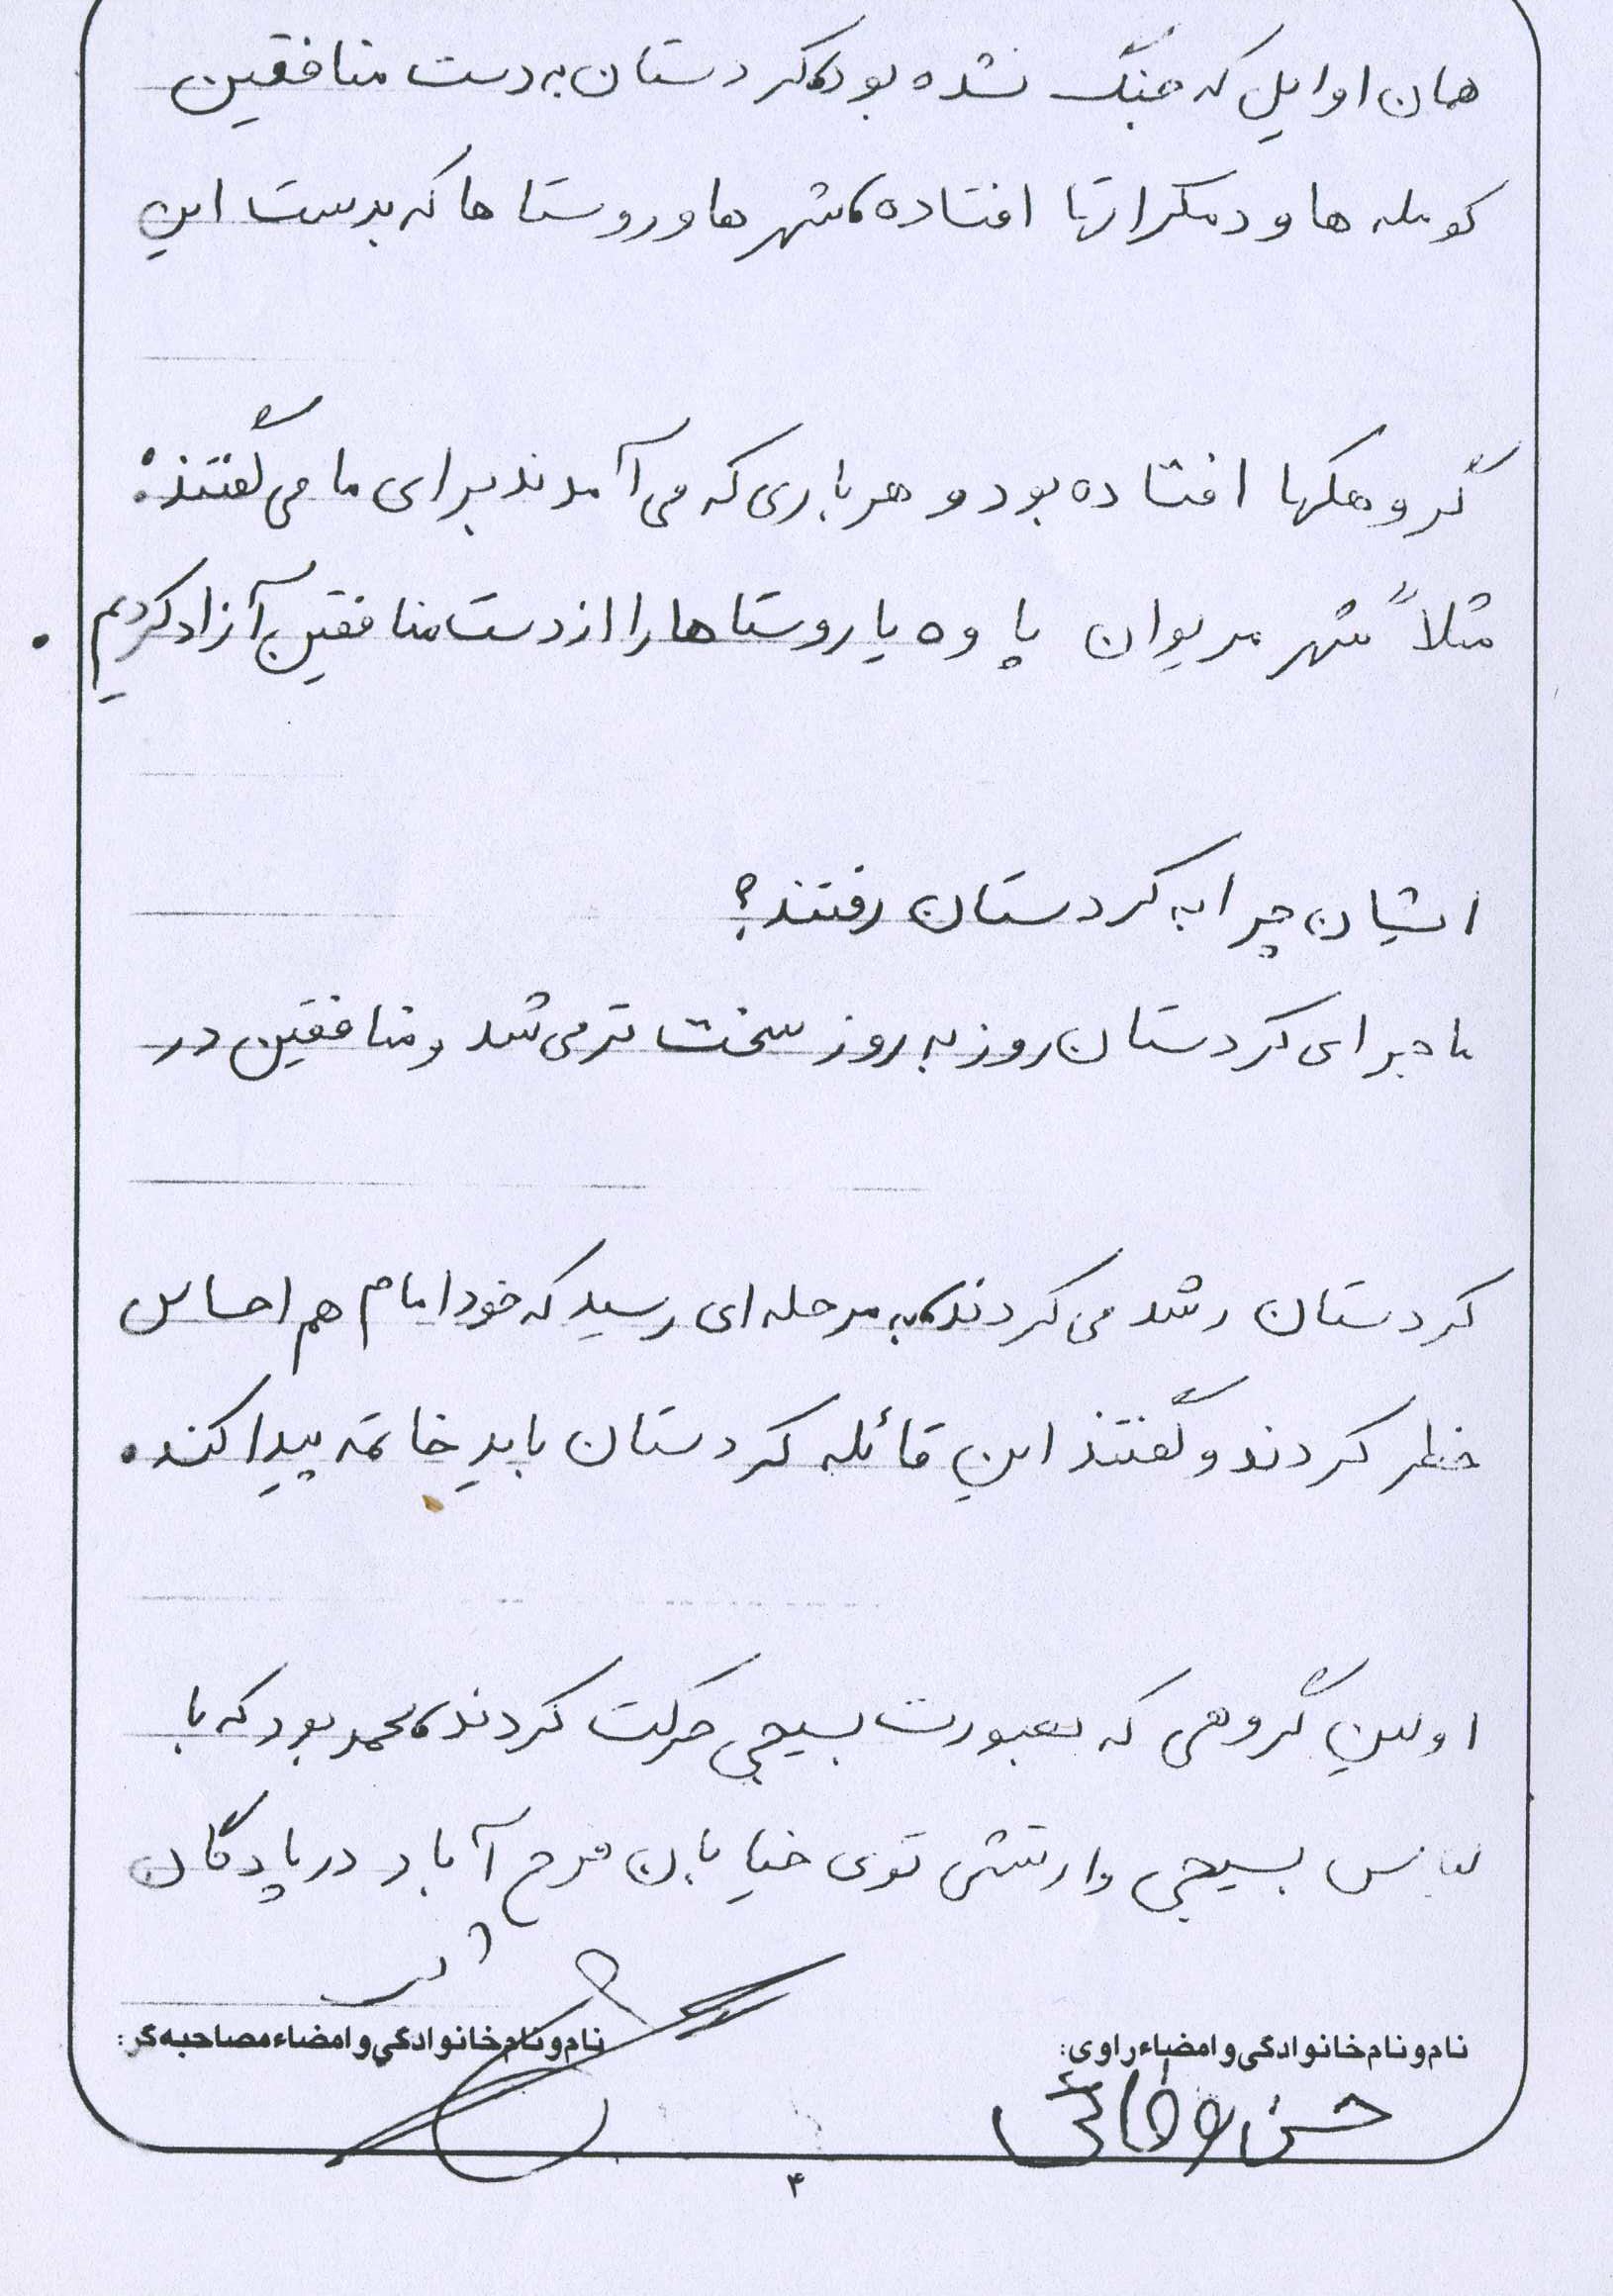 همان اوایل که جنگ نشده بود، کردستان به دست منافقین
کومله ها و دمکراتها افتاده، شهرها و روستاها که بدست این
گروهکها افتاده بود و هر باری که می آمدند برای ما می گفتند:
مثلاً شهر مریوان پاوه یا روستاها را از دست منافقین آزاد کردیم.
ایشان چرا به کردستان رفتند؟
ماجرای کردستان روز به روز سخت تر می شد و منافقین در
کردستان رشد می کردند، به مرحله ای رسید که خود امام هم احساس
خطر کردند و گفتند این قائله کردستان باید خاتمه پیدا کند.
اولین گروهی که بصورت بسیجی حرکت کردند، محمد بود که با
لباس بسیجی وارتشی توی خیابان فرح آباد در پادگان
نام و نام خانوادگی و امضاء راوی:
نام و نام خانوادگی و امضاء مصاحبه گر:
حسن
۴